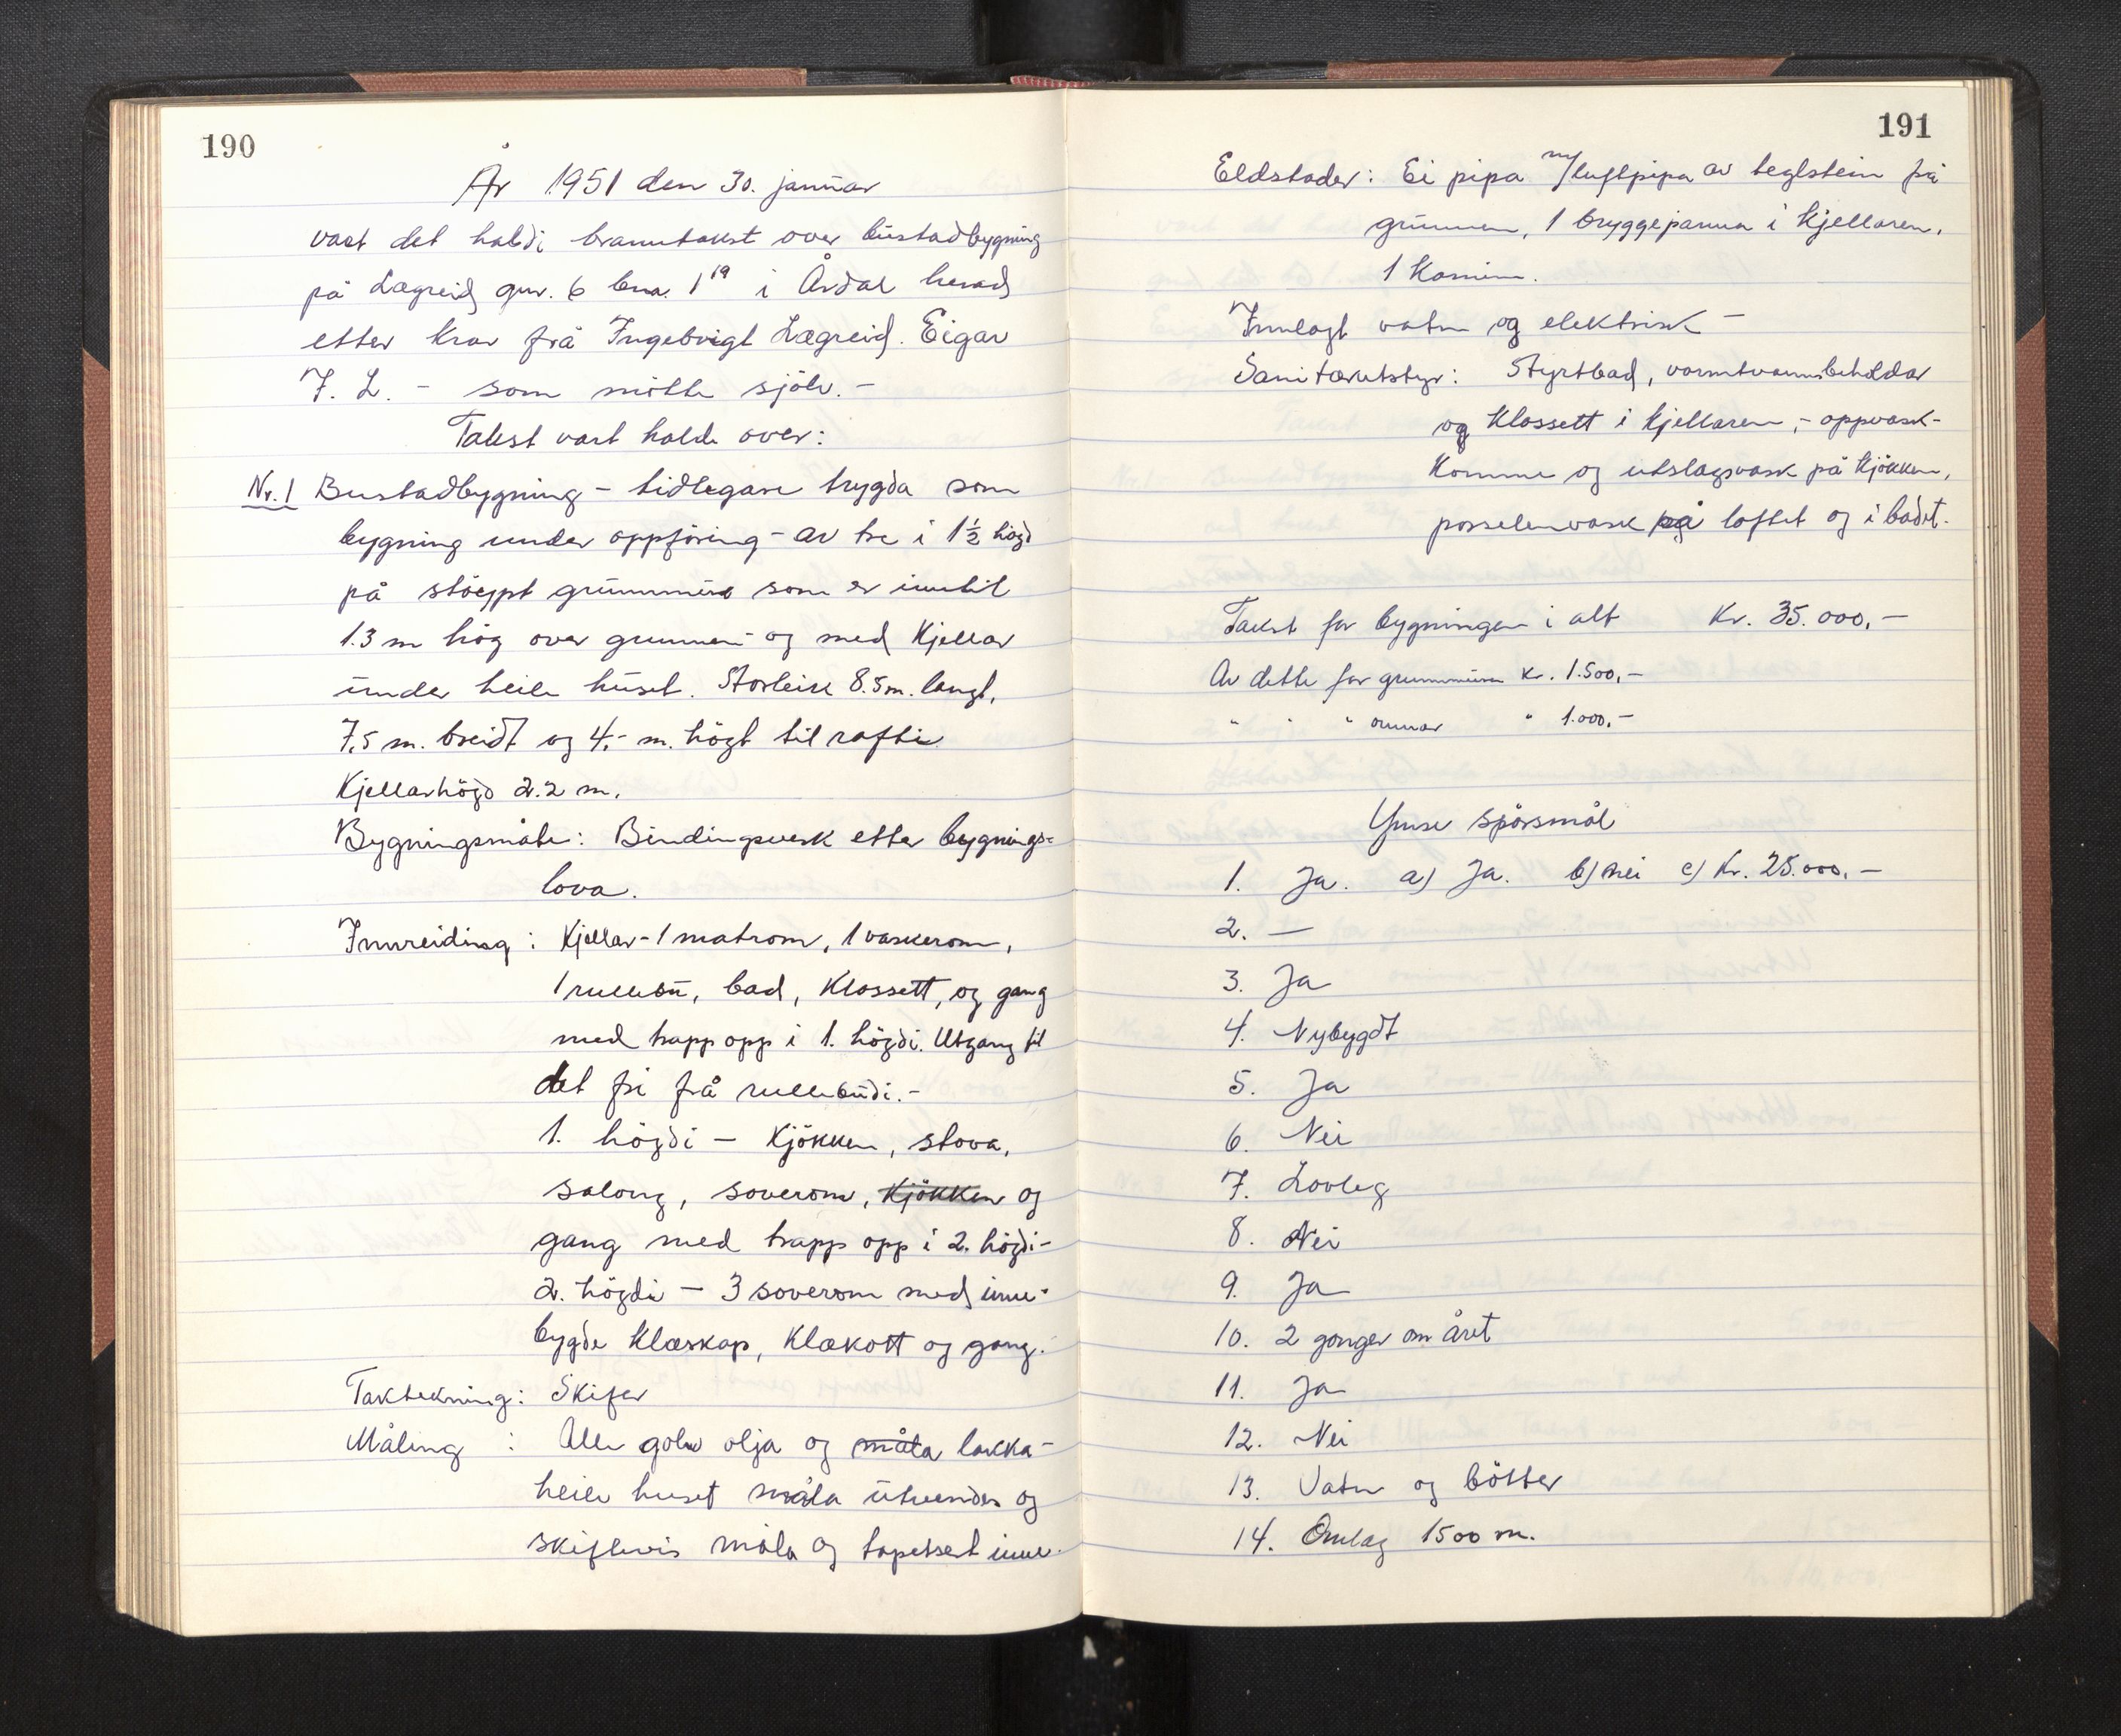 190
År 1951 den 30. januar
vart det haldi branntakst over bustadbygning
på Lægreid gnr. 6 bnr. 1¹⁹ i Årdal herad
etter krav frå Ingebrigt Lægreid. Eigar
I. L. – som mötte sjölv. –
Takst vart halde over:
Nr. 1 Bustadbygning – tidlegare trygda som
bygning under oppföring – av tre i 1½ högd
på stöypt grunnmur som er inntil
1.3 m hög over grunnen – og med kjellar
under heile huset. Storleik 8.5 m. langt,
7,5 m. breidt og 4,- m. högt til rafti.
Kjellarhögd 2.2 m.
Bygningsmåte: Bindingsverk etter bygnings-
lova.
Innreiding: Kjellar – 1 matrom, 1 vaskerom,
1 rullebu, bad, klossett, og gang
med trapp opp i 1. högdi. Utgang til
det fri frå rullebudi. –
1. högdi – kjökken, stova,
salong, soverom, kjökken og
gang med trapp opp i 2. högdi –
2. högdi – 3 soverom med inne-
bygde klæskap, klækott og gang.
Taktekning: Skifer
Måling : Alle golv olja og måla lakka –
heile huset måla utvendes og
skiftevis måla og tapetsert inne.
191
Eldstader: Ei pipa m/luftpipa av teglstein frå
grunnen, 1 bryggepanna i kjellaren,
1 Kamin.
Innlagt vatn og elektrisk –
Sanitærutstyr: Styrtbad, varmtvannsbehaldar
og klossett i kjellaren, – oppvask-
komme og utslagsvask på kjökken,
porselenvask på loftet og i badet.
Takst for bygningen i alt Kr. 35.000,–
Av dette for grunnmuren Kr. 1.500,–
" " " omnar " 1.000,–
Ymse spörsmål
1. Ja. a) Ja. b) nei c) Kr. 25.000,–
2. —
3. Ja
4. Nybygdt
5. Ja
6. Nei
7. Lovleg
8. Nei
9. Ja
10. 2 gonger om året
11. Ja
12. Nei
13. Vatn og bötter
14. Omlag 1500 m.